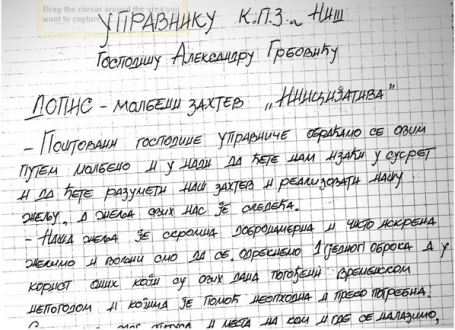 Drag the cursor around the area you
want to capture
УПРАВНИКУ К.П.З-а НИШ
Господину Александру Грбовићу
ДОПИС - молбени захтев „Иницијатива"
- Поштовани господине управниче обраћамо се овим
путем молбено и у нади да ћете нам изаћи у сусрет
и да ћете разумети наш захтев и реализовати нашу
жељу, а жеља свих нас је следећа.
- Наша жеља је скромна добронамерна и чисто искрена
желимо и вољни смо да се одрекнемо 1 једног оброка а у
корист оних који су ових дана погођени временском
непогодом и којима је помоћ неопходна и преко потребна.
места на ком и где се налазимо,